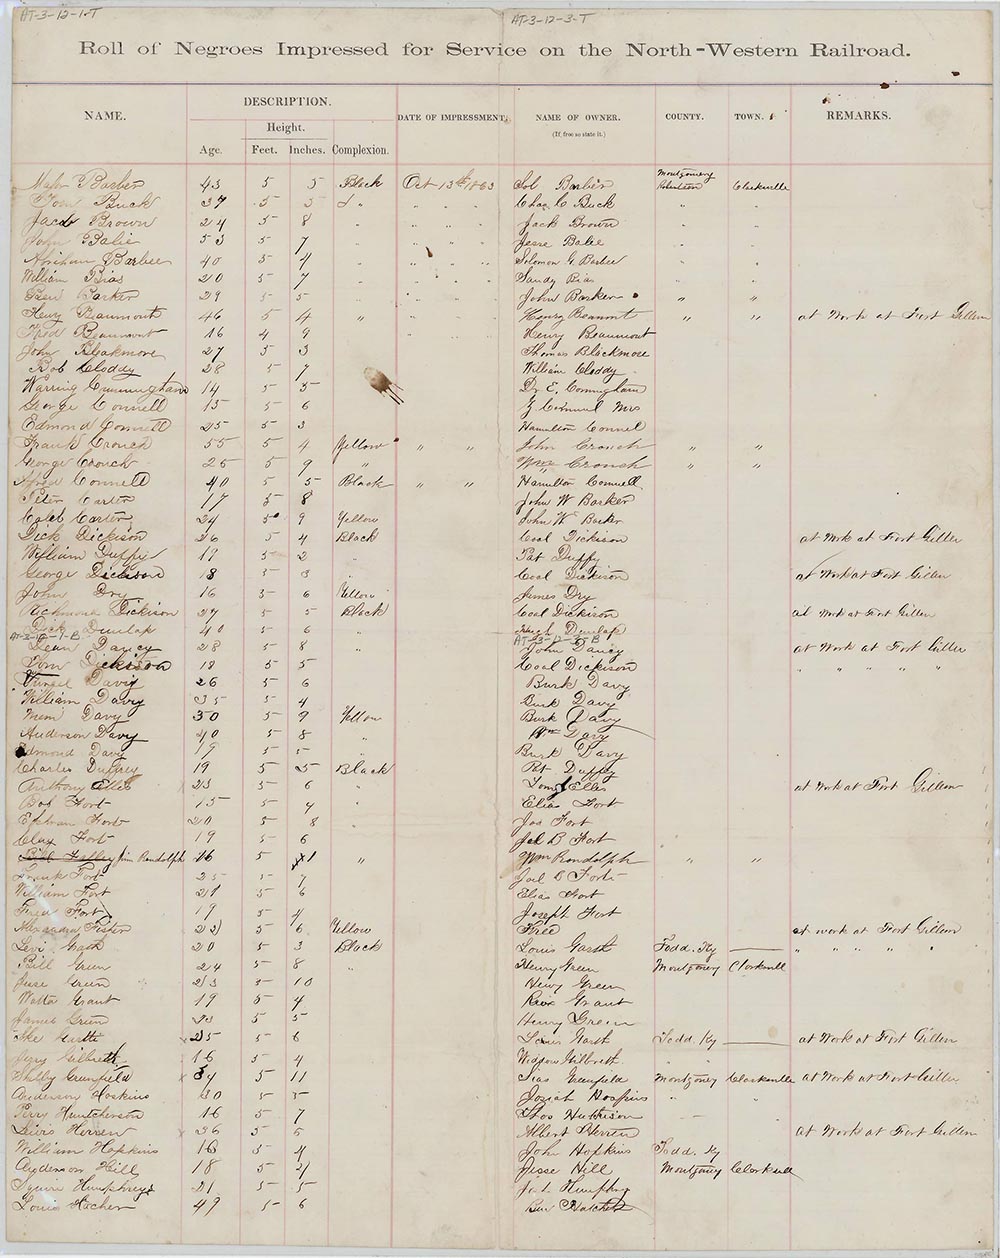 AT-3-12-1-T AT-3-12-3-T
Roll of Negroes Impressed for Service on the North-Western Railroad.
NAME. DESCRIPTION. DATE OF IMPRESSMENT. NAME OF OWNER. COUNTY. TOWN. REMARKS.
Height. (If free so state it.)
Age. Feet. Inches. Complexion.
Barber 43 5 5 Black Oct 13th 1863 Sol Barber Montgomery Robertson Clarksville
Tom Buck 37 5 5 " Chas C Buck " "
Jacob Brown 24 5 8 " " " " Jack Brown " "
John Balie 53 5 7 " " " " Jesse Balie " "
Abriham Barbee 40 5 4 " " " " Solomon G. Barbee " "
William Bias 20 5 7 " " " " Sandy Bias " "
Barker 29 5 5 " " " " John Barker " "
Henry Beaumont 46 5 4 " " " " Henry Beaumt " " at Work at Fort Gillem
Fred Beaumont 16 4 9 " " " Henry Beaumont
John Blakmore 27 5 3 Thomas Blackmore
Bob Cloddy 28 5 7 William Cloddy
Warring Cunningham 14 5 5 Dr E. Cunningham
George Connell 15 5 6 Mrs
Edmond Connell 25 5 3 Hamilton Connel
Frank Crouch 55 5 4 Yellow " " John Crouch " "
George Crouch 25 5 9 " Wm Crouch " "
Alfred Connell 40 5 5 Black " " Hamilton Connell
Peter Carter 17 5 8 John W Barker
Caleb Carter 24 5 9 Yellow John W Barker
Dick Dickison 26 5 4 Black Coal Dickison at Work at Fort Gillem
William Duffie 19 5 2 " Pat Duffy
George Dickison 18 5 3 " Coal Dickison at Work at Fort Gillem
John Dry 16 5 6 Yellow James Dry
Richmond Dickison 27 5 5 Black Coal Dickison at Work at Fort Gillem
Dick Dunlap 40 5 6 " Hugh Dunlap
AT-3-12-1-B AT-3-12-3-B
Dean Dancy 28 5 8 " John Dancy at Work at Fort Gillem
Tom Dickison 18 5 5 Coal Dickison " " " " "
Davy 26 5 6 Burk Davy
William Davy 35 5 4 Burk Davy
Mem Davy 30 5 9 Yellow Burk Davy
Anderson Davy 40 5 8 " Wm Davy
Edmond Davy 19 5 5 " Burk Davy
Charles Duffey 19 5 5 Black Pat Duffey
Anthony Elles 23 5 6 " Elles at Work at Fort Gillem
Bob Fort 15 5 4 " Elias Fort
Ephran Fort 20 5 8 " Jos Fort
Clay Fort 19 5 6 Jol B Fort
Jim Randolph 16 5 1 " Wm Randolph " "
Frank Fort 25 5 7 Joil B Fort
William Fort 21 5 6 Elias Fort
Fred Fort 19 5 4 Joseph Fort
Alexandra Fister 22 5 6 Yellow Free at work at Fort Gillem
Levi Gath 20 5 3 Black Louis Garth Todd. Ky " " " " "
Bill Green 24 5 8 " Henry Green Montgomey Clarksvill
Jesse Green 23 5 10 Henry Green
Watta Grant 19 5 4 Grant
James Green 23 5 5 Henry Green
Ike Garth 25 5 6 Louis Garth Todd. Ky at Work at Fort Gillem
Jery Gilbreth 16 5 4 Widdow Gilbreth
Shelby Greenfield 34 5 11 Greenfield Montgomey Clarksville at Work at Fort Gillem
Anderson Hoskins 30 5 5 Josiah Hospins " "
Perry Huntcherson 16 5 7 Thos Hutchison
Lewis Herren 36 5 5 Albert Herren at Work at Fort Gillem
William Hopkins 16 5 4 John Hopkins Todd. Ky
Anderson Hill 18 5 4 Jesse Hill Montgomey Clarksvill
Squire Humphreys 21 5 5 Humphry
Louis Hacher 49 5 6 Ben Hatchett